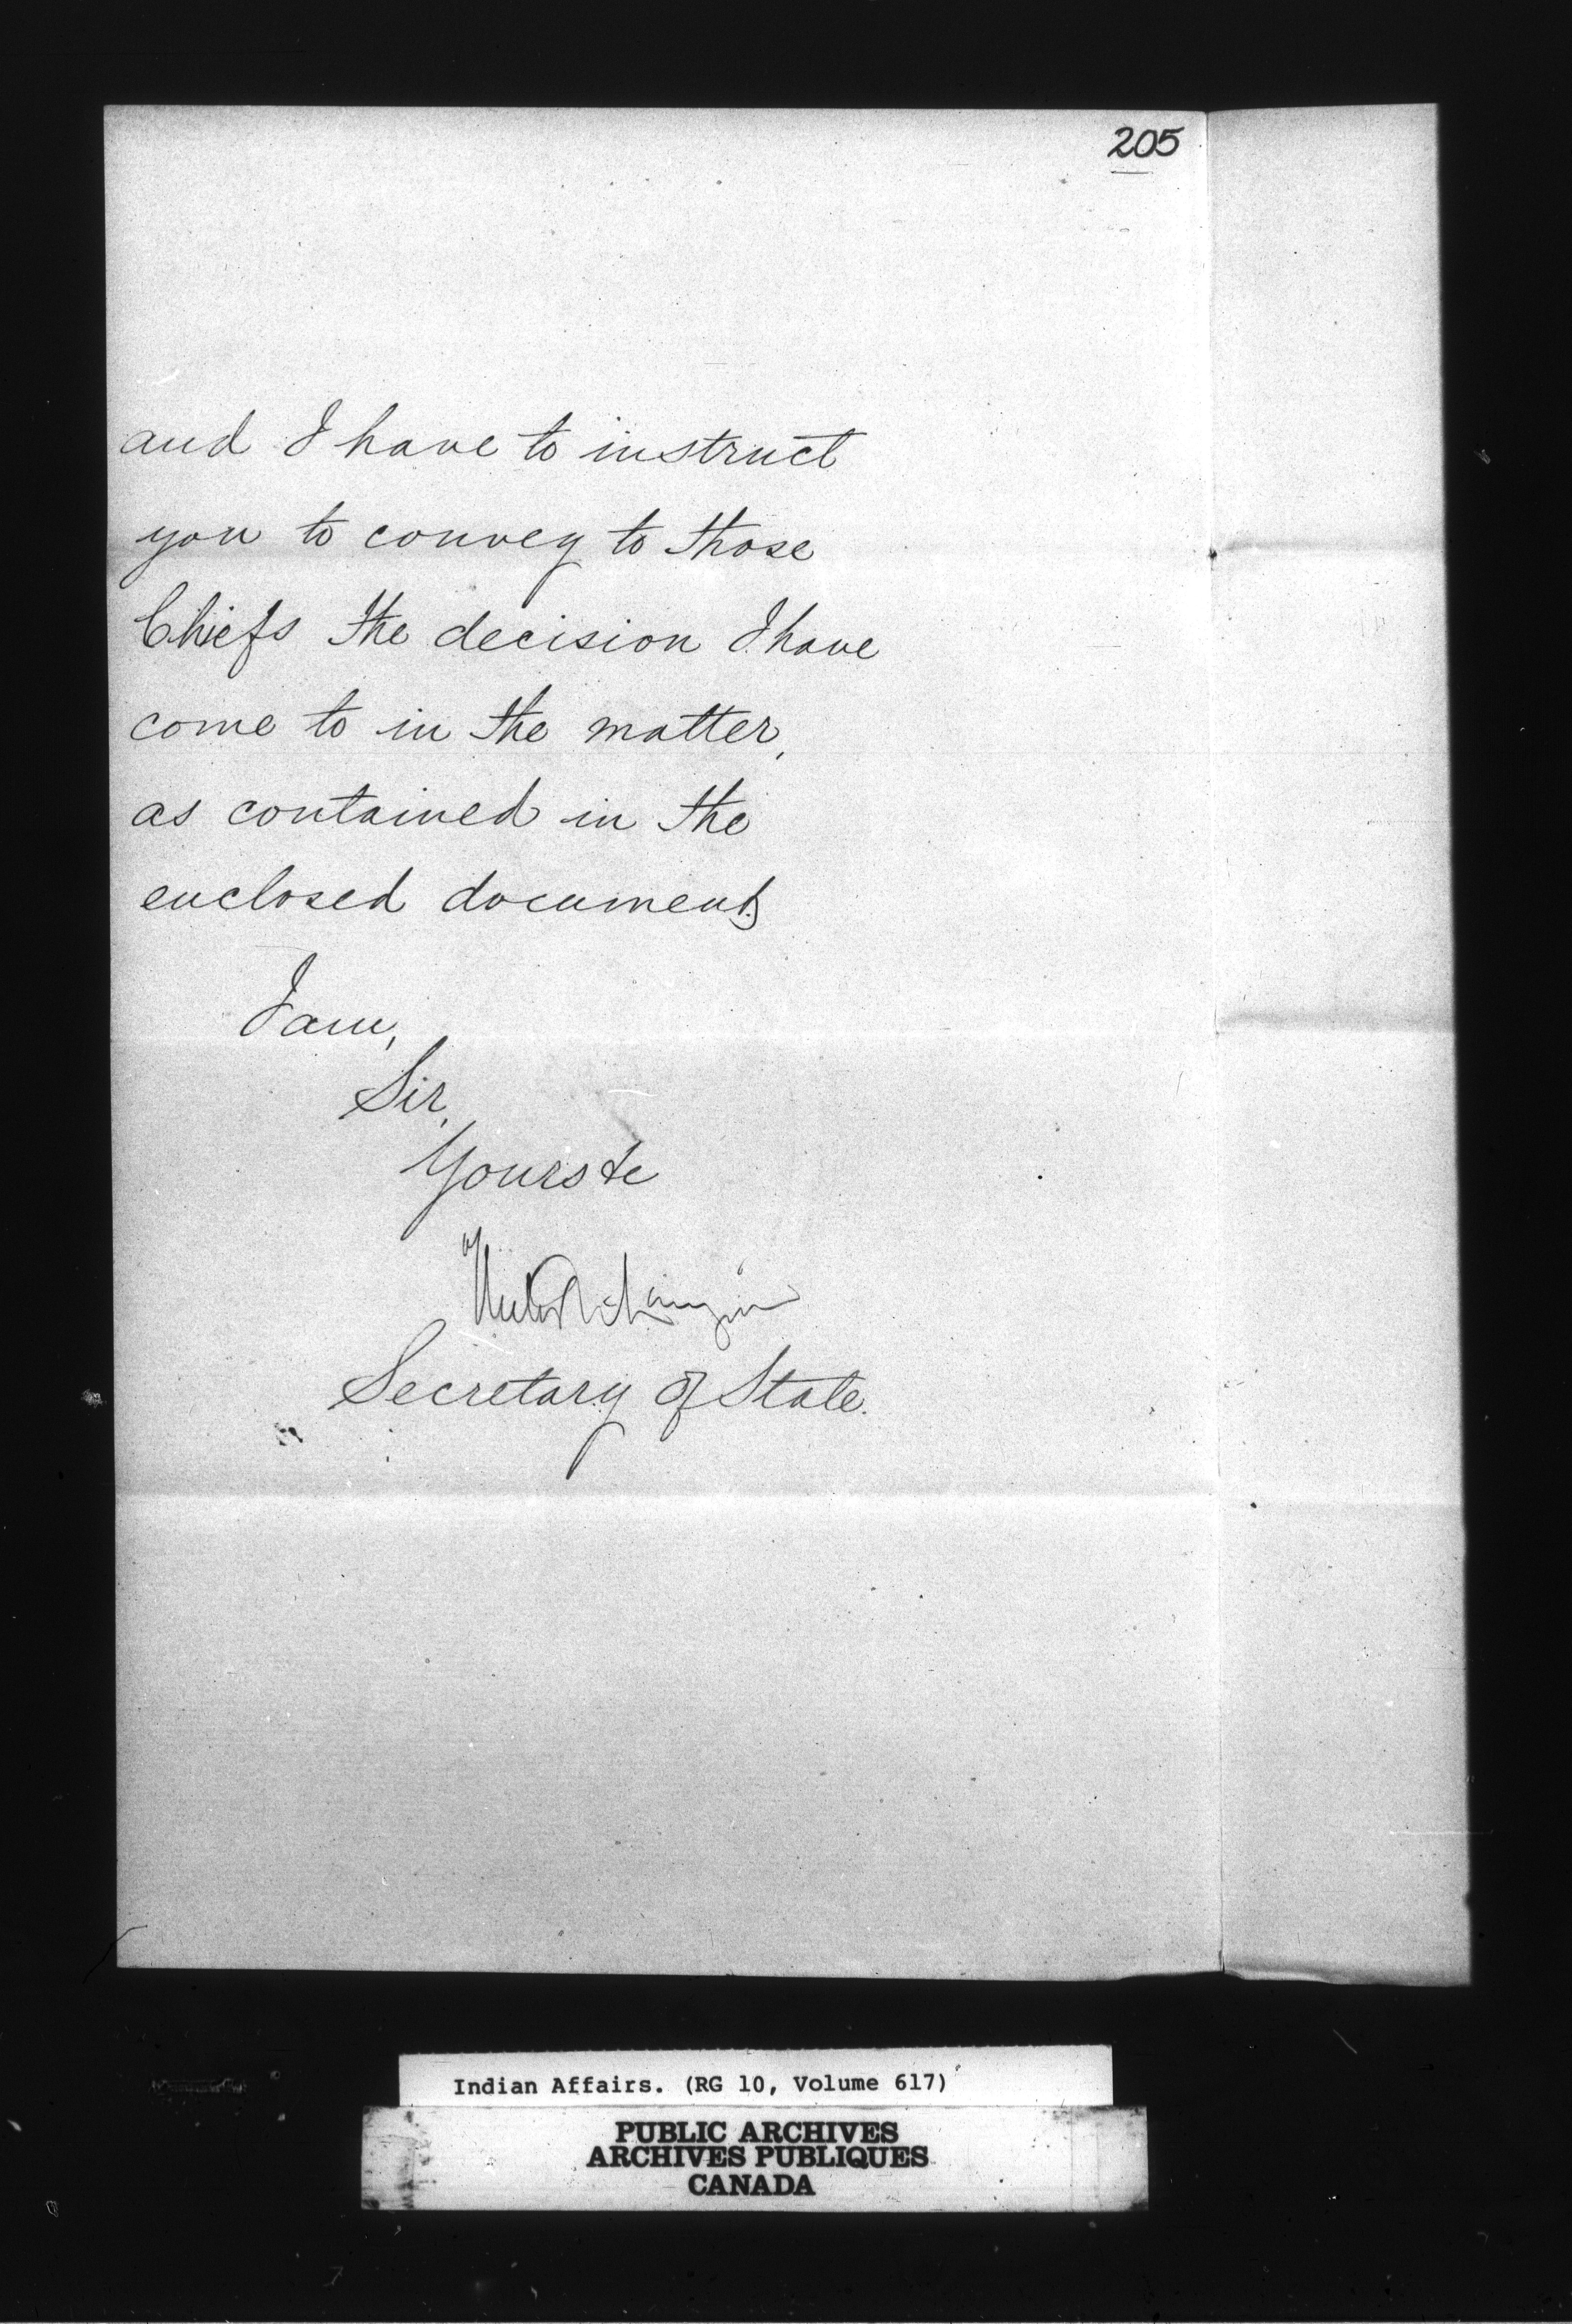 205
and I have to instruct
you to convey to those
Chiefs the decision I have
come to in the matter,
as contained in the
enclosed documents
I am,
Sir,
Yours &c
Secretary of State.
Indian Affairs. (RG 10, Volume 617)
PUBLIC ARCHIVES
ARCHIVES PUBLIQUES
CANADA